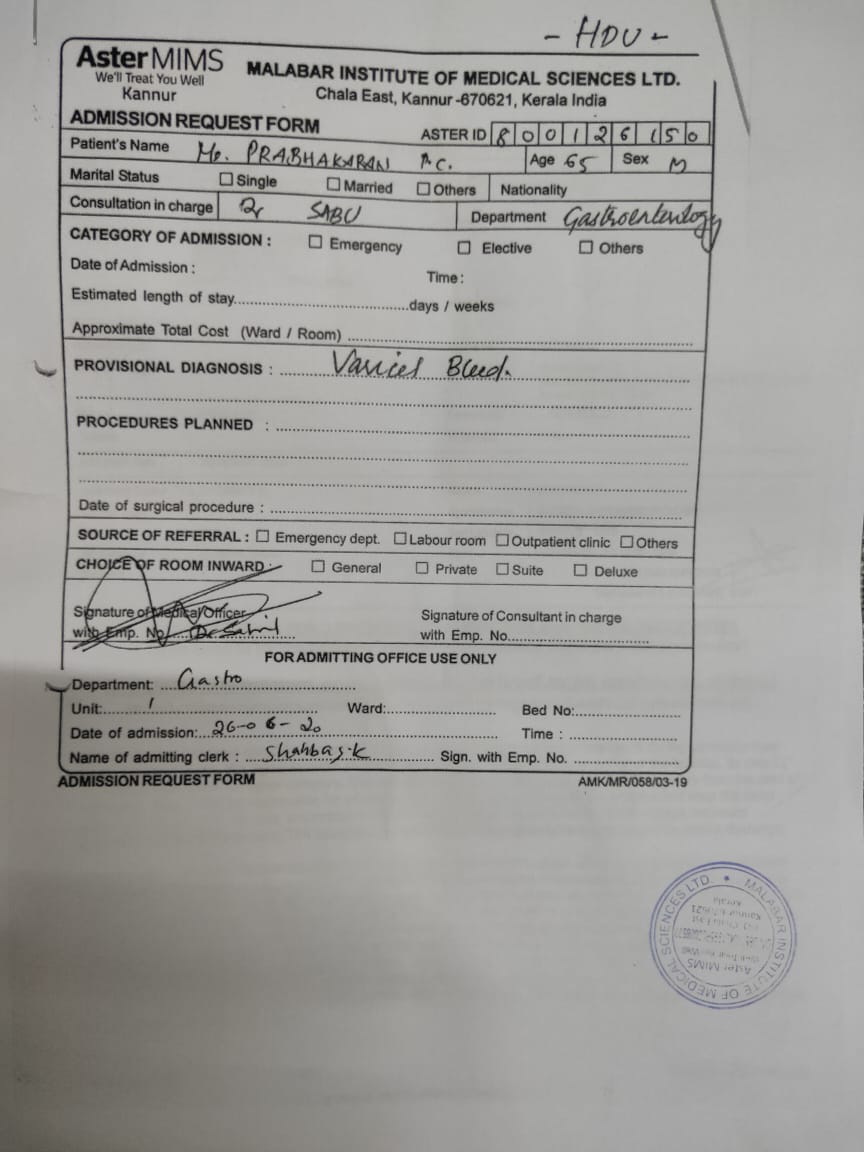 - HDU -
AsterMIMS
We'll Treat You Well
Kannur
MALABAR INSTITUTE OF MEDICAL SCIENCES LTD.
Chala East, Kannur -670621, Kerala India
ADMISSION REQUEST FORM ASTER ID 8 0 0 1 2 6 1 5 0
Patient's Name Mr. PRABHAKARAN C. Age 65 Sex M
Marital Status Single Married Others Nationality
Consultation in charge Dr SABU Department Gastroenterology
CATEGORY OF ADMISSION : Emergency Elective Others
Date of Admission : Time :
Estimated length of stay..............................days / weeks
Approximate Total Cost (Ward / Room) ..............................
PROVISIONAL DIAGNOSIS : Bleed.
PROCEDURES PLANNED : ..............................
Date of surgical procedure : ..............................
SOURCE OF REFERRAL : Emergency dept. Labour room Outpatient clinic Others
CHOICE OF ROOM INWARD : General Private Suite Deluxe
Signature of Medical Officer Signature of Consultant in charge
with Emp. No. with Emp. No..............................
FOR ADMITTING OFFICE USE ONLY
Department: Gastro
Unit: 1 Ward: Bed No:
Date of admission: 26-06-20 Time :
Name of admitting clerk : Shahbas.k Sign. with Emp. No.
ADMISSION REQUEST FORM AMK/MR/058/03-19
MALABAR INSTITUTE OF MEDICAL SCIENCES LTD.
Aster MIMS